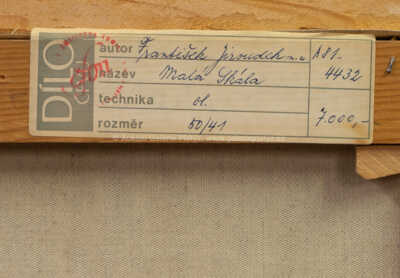 DÍLO
autor František Jiroudek n.u. A81-
název Malá Skála 4432
technika ol.
rozměr 50/41 7.000,-